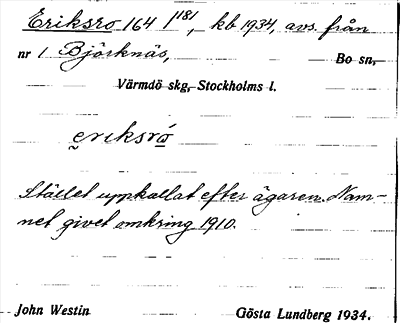 Eriksro 164 1/181, kb 1934, avs. från
nr 1 Björknäs, Bo sn,
Värmdö skg, Stockholms l.
eriksró
Stället uppkallat efter ägaren. Nam-
net givet omkring 1910.
John Westin Gösta Lundberg 1934.